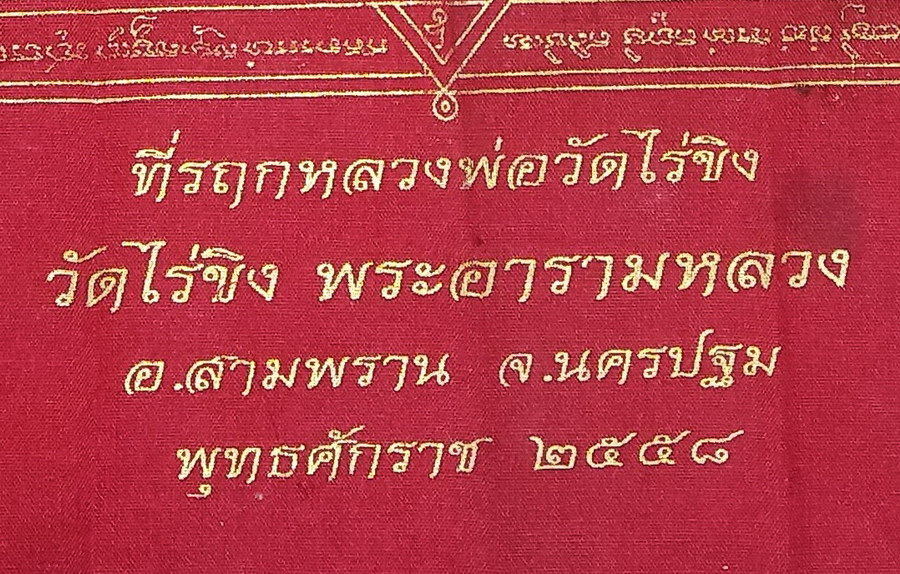 ที่รฤกหลวงพ่อวัดไร่ขิง
วัดไร่ขิง พระอารามหลวง
อ.สามพราน จ.นครปฐม
พุทธศักราช ๒๕๕๘